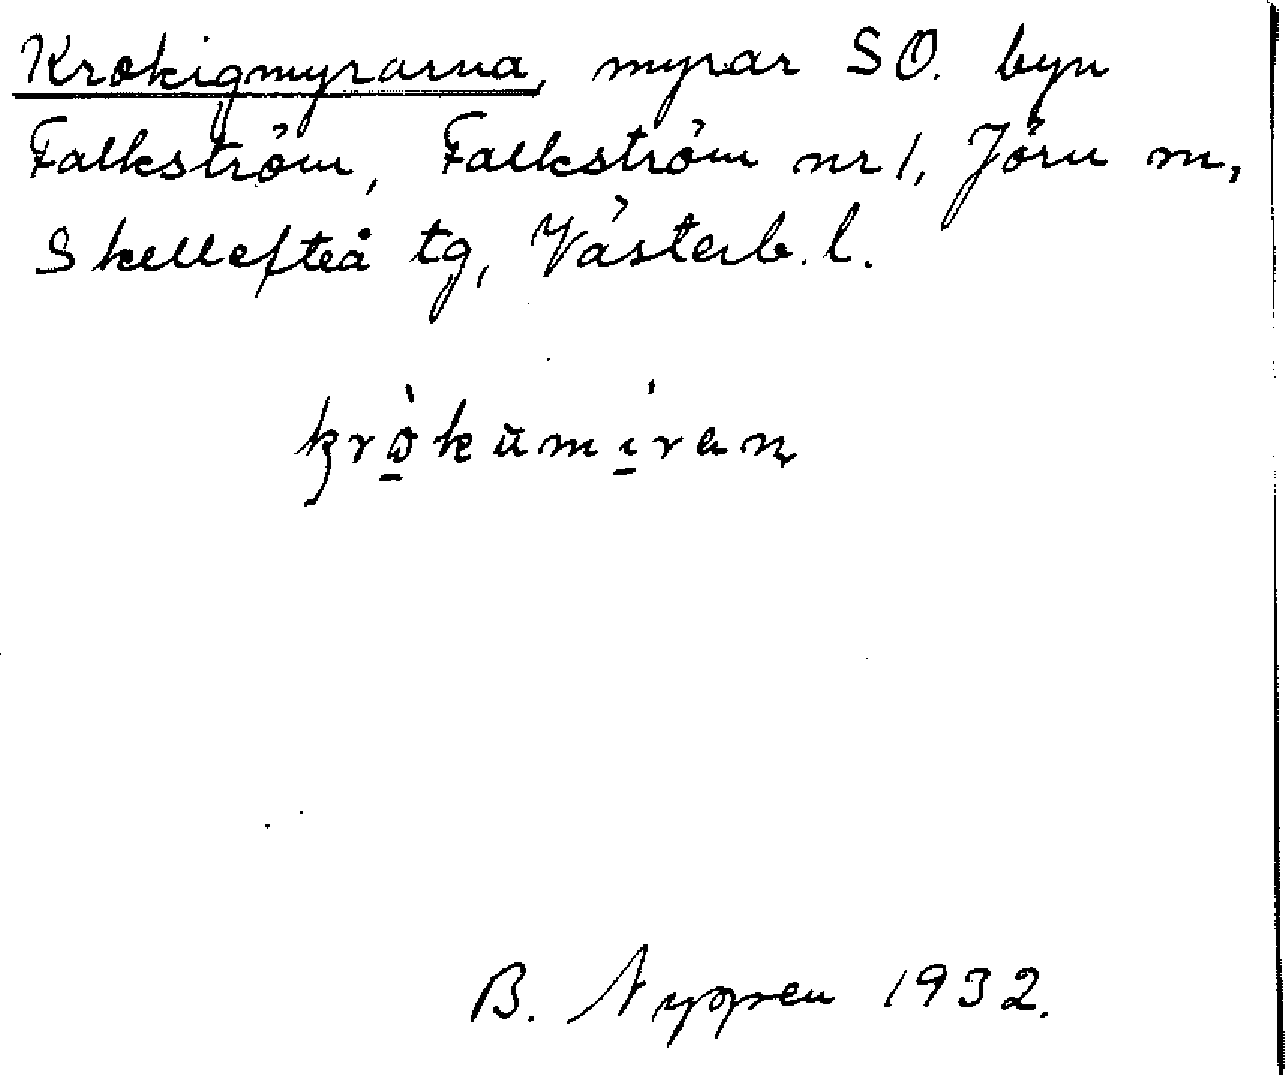 Krokigmyrarna, myrar SO. byn
Falkström, Falkström nr 1, Jörn sn,
Skellefteå tg, Västerb. l.
B. Nygren 1932.